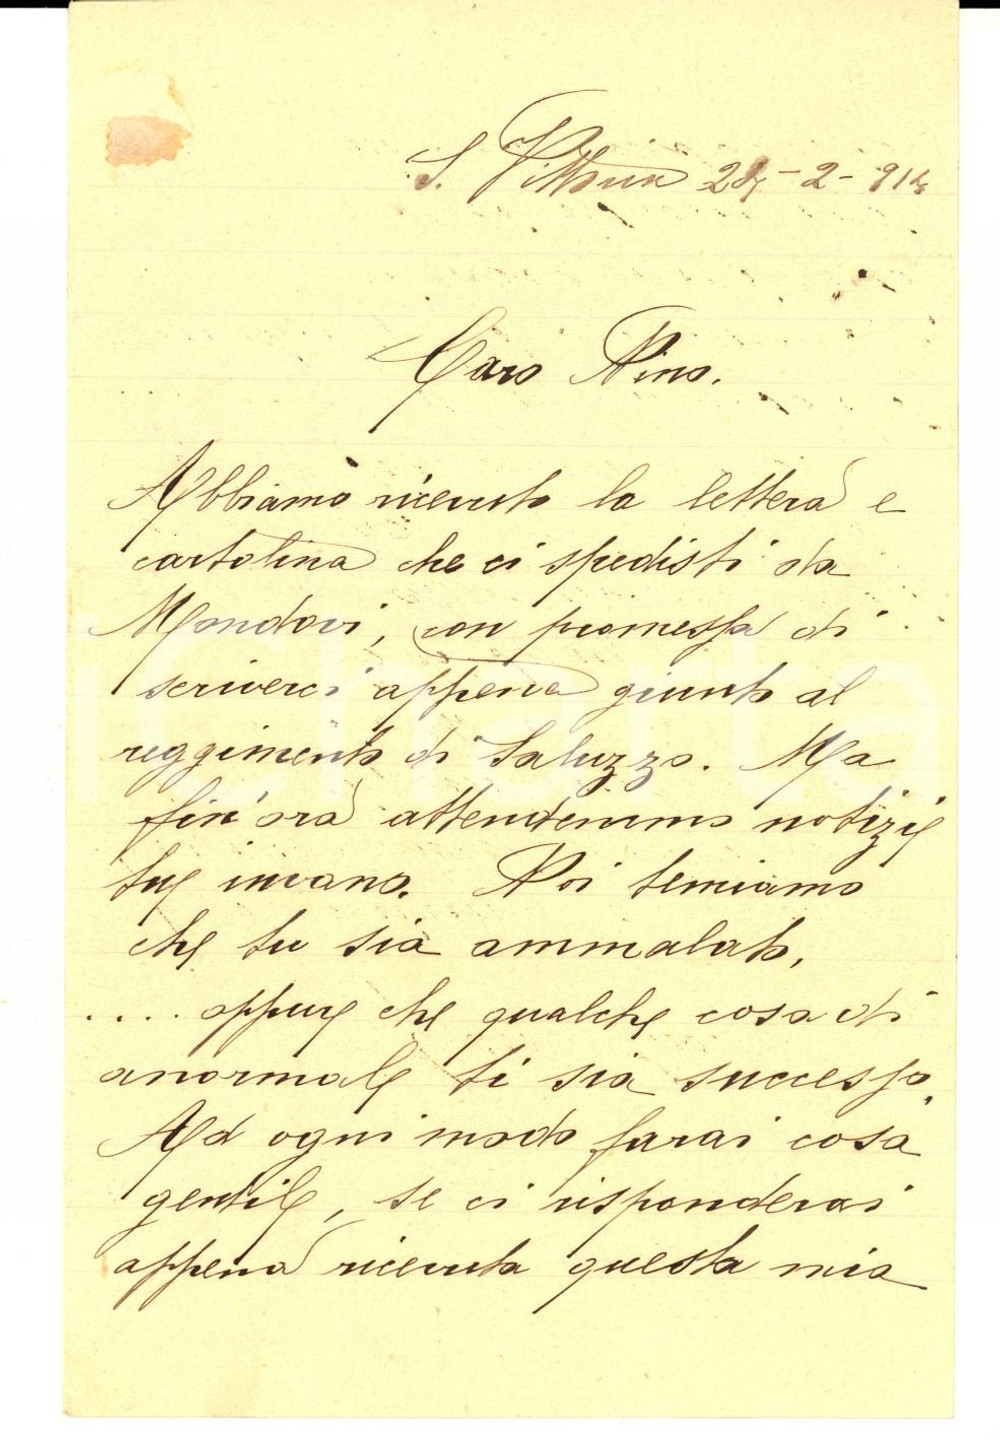 S. Vittoria 24-2-914
Caro Nino.
Abbiamo ricevuto la lettera e
cartolina che ci spedisti da
Mondovi, con promessa di
scriverci appena giunto al
reggimento di Saluzzo. Ma
fin'ora attendemmo notizie
tue invano. Noi temiamo
che tu sia ammalato,
.... oppure che qualche cosa di
anormale ti sia successo.
Ad ogni modo farai cosa
gentile, se ci risponderai
appena ricevuta questa mia